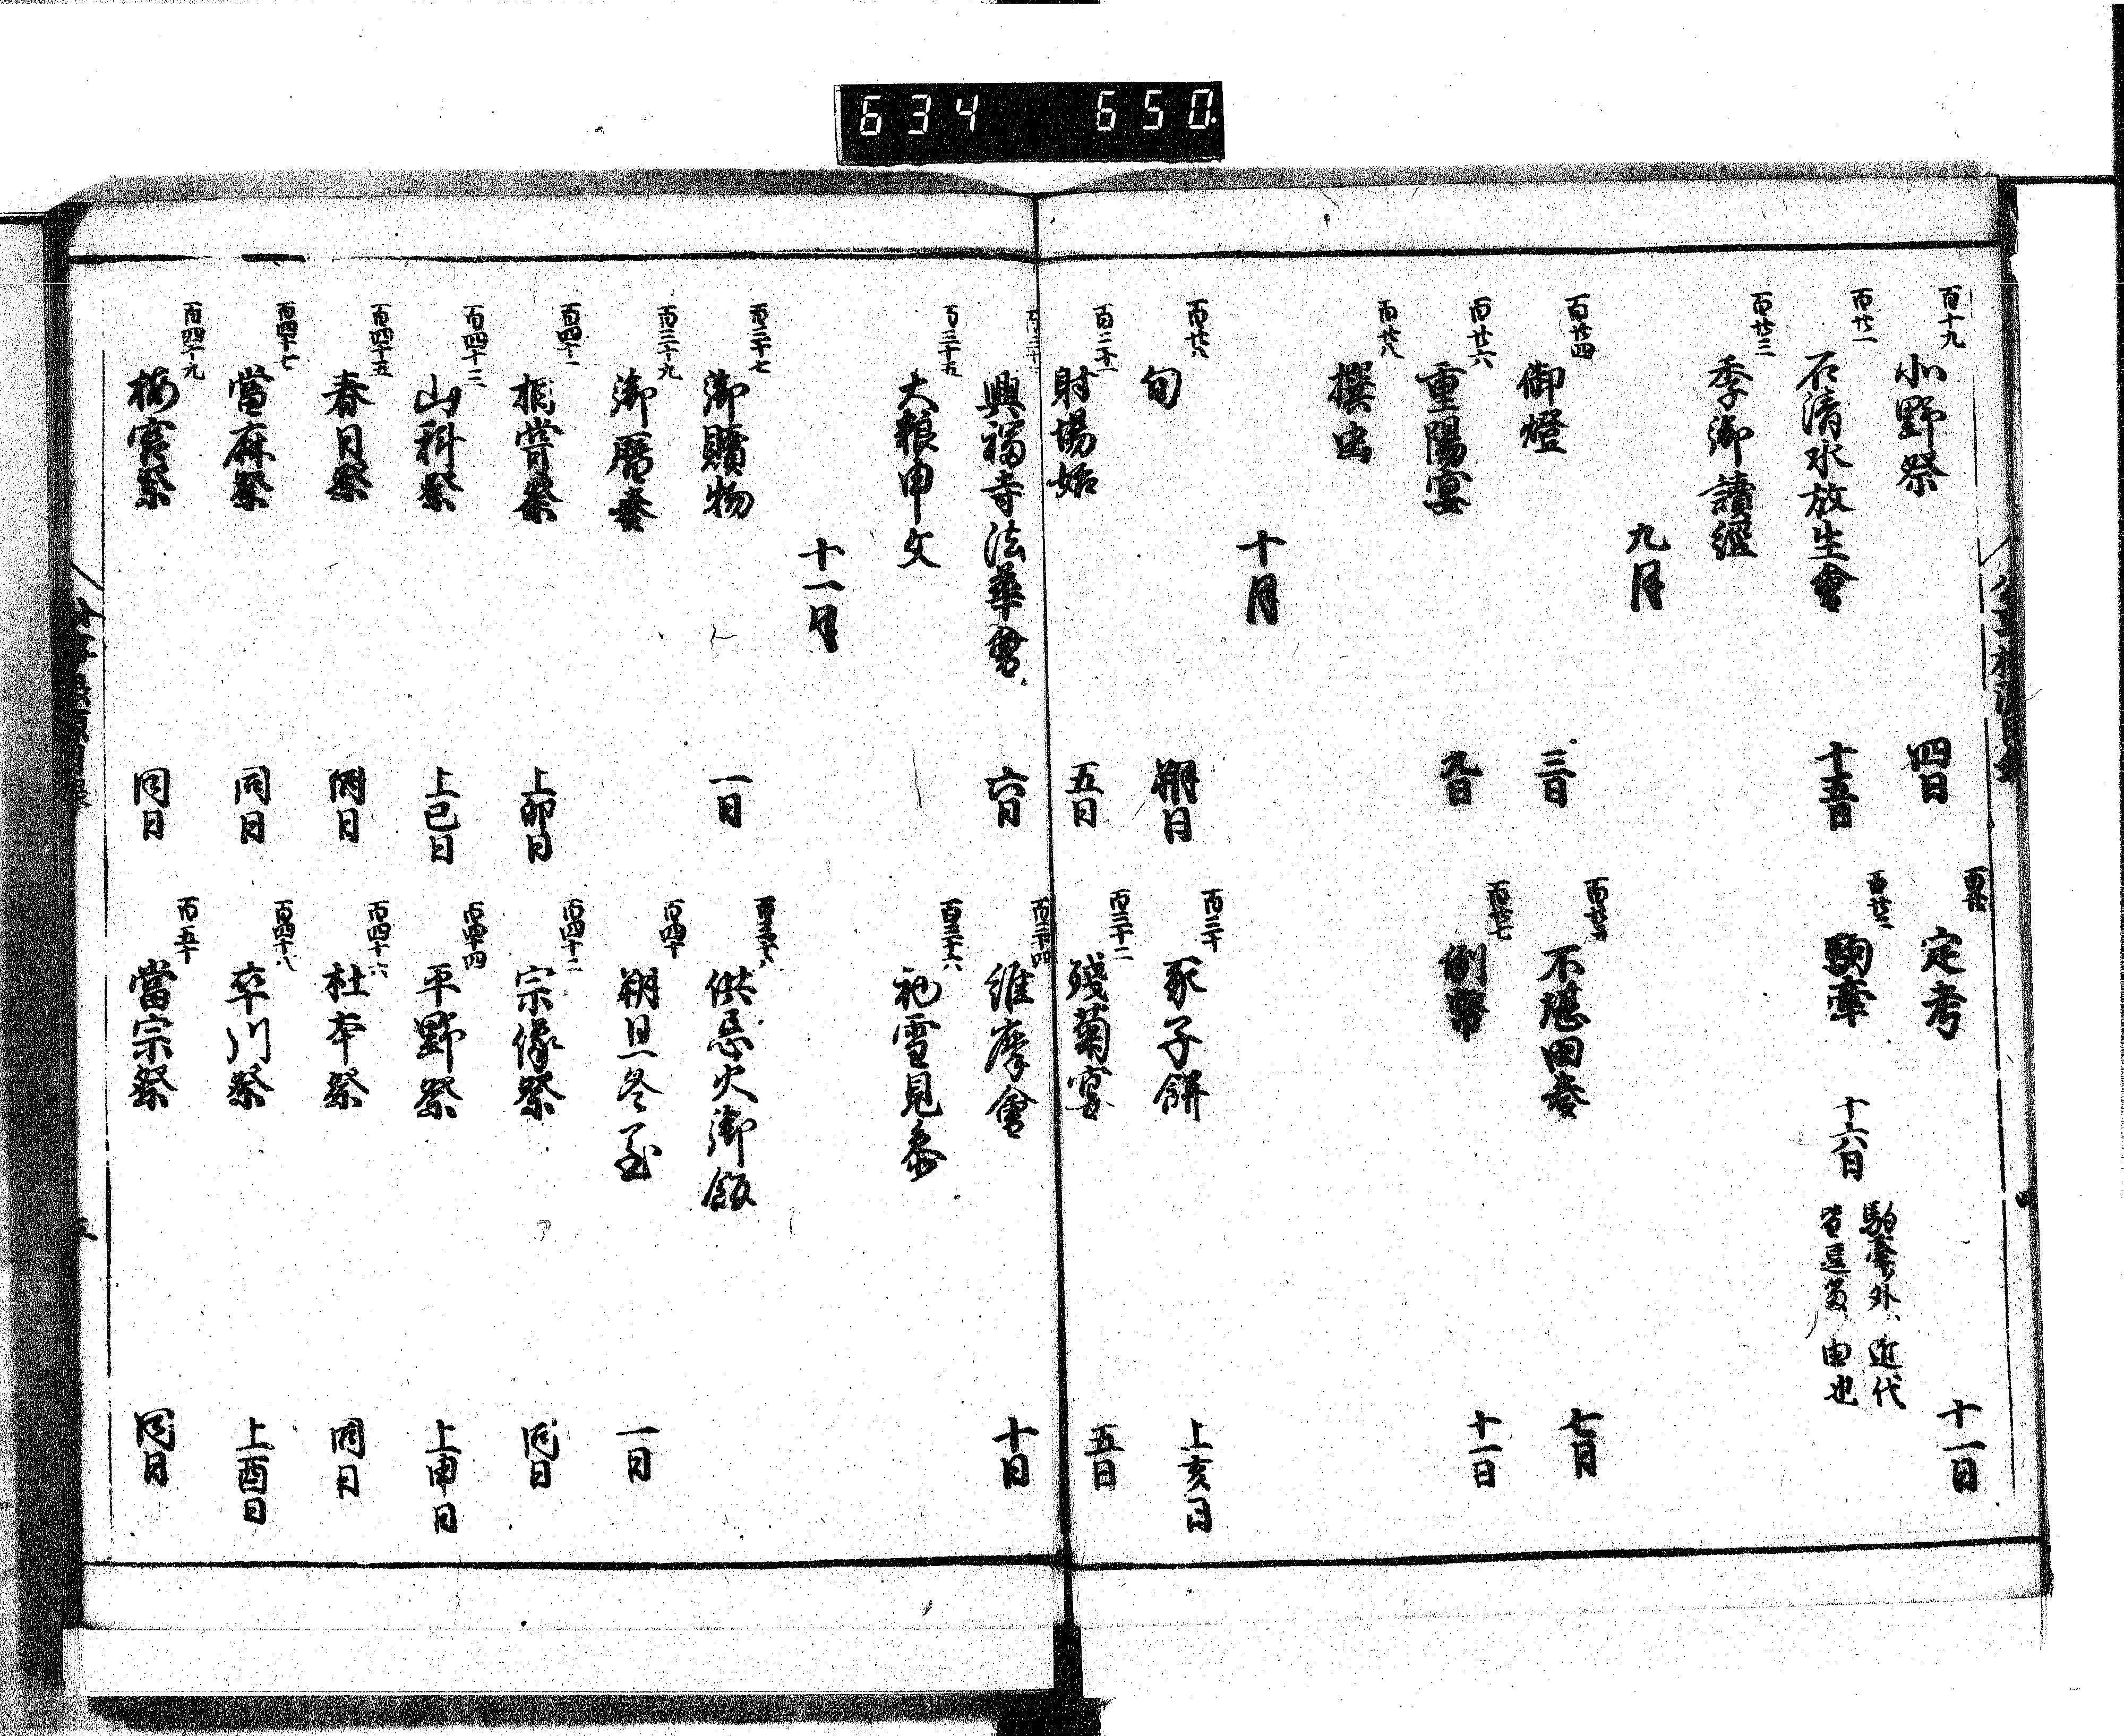 634 650
百十九 北野祭 四日 百二十 定考 十一日
百廿一 石清水放生會 十五日 百廿二 駒牽 十六日 駒牽外近代
皆進発由也
百廿三 季御讀經
九月
百廿四 御燈 三日 百廿五 不堪田奏 七日
百廿六 重陽宴 九日 百廿七 例幣 十一日
百廿八 撰虫
十月
百廿九 旬 朔日 百三十 豕子餅 上亥日
百三十一 射場始 五日 百三十二 殘菊宴 五日
百三十三 興福寺法華會 六日 百三十四 維摩會 十日
百三十五 大粮申文 百三十六 初雪見参
十一月
百三十七 御贖物 一日 百三十八 供忌火御飯
百三十九 御曆奏 百四十 朔旦冬至 一日
百四十一 相嘗祭 上卯日 百四十二 宗像祭 同日
百四十三 山科祭 上巳日 百四十四 平野祭 上申日
百四十五 春日祭 同日 百四十六 杜本祭 同日
百四十七 當麻祭 同日 百四十八 卒川祭 上酉日
百四十九 梅宮祭 同日 百五十 當宗祭 同日